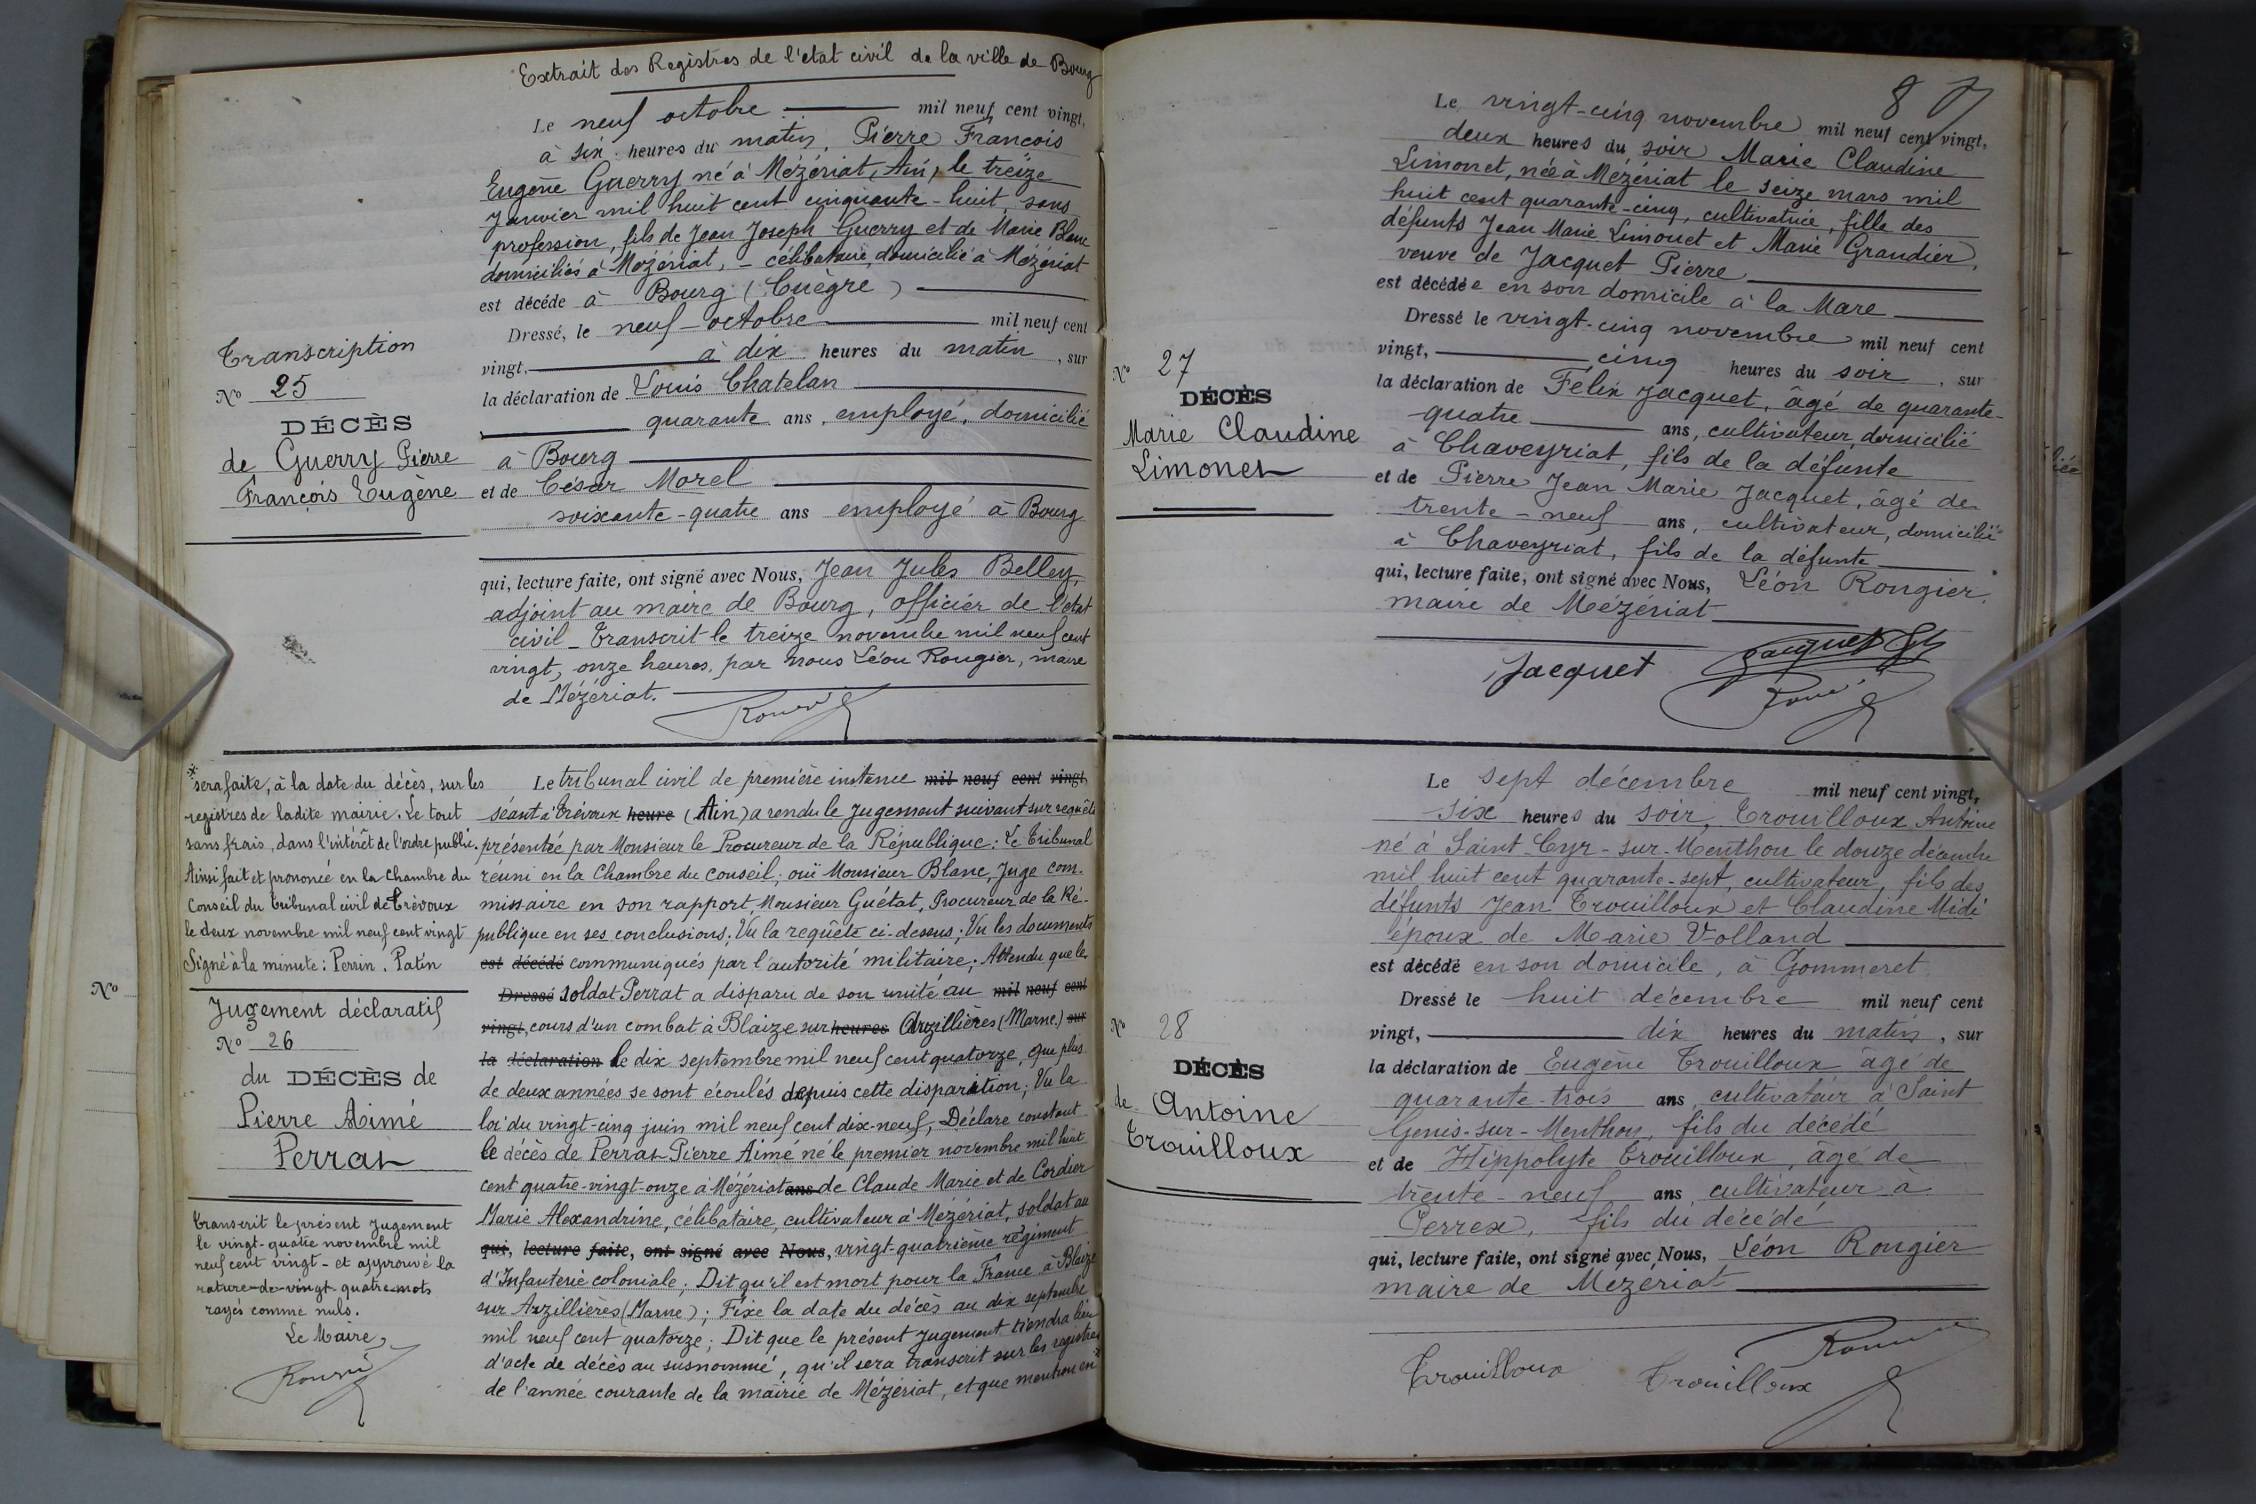 Extrait des Registres de l'etat civil de la ville de Bourg
Transcription
No 25
DÉCÈS
de Guerry Pierre
François Eugène
Le neuf octobre mil neuf cent vingt,
à six heures du matin, Pierre François
Eugène Guerry né à Mézériat, Ain, le treize
Janvier mil huit cent cinquante-huit, sans
profession, fils de Jean Joseph Guerry et de Marie Blanc
domiciliés à Mézériat, - célibataire, domicilié à Mézériat
est décédé à Bourg (Cuègre)
Dressé, le neuf octobre mil neuf cent
vingt, à dix heures du matin, sur
la déclaration de Louis Chatelan
quarante ans, employé, domicilié
à Bourg
et de César Morel
soixante-quatre ans employé à Bourg
qui, lecture faite, ont signé avec Nous, Jean Jules Belley,
adjoint au maire de Bourg, officier de l'état
civil - Transcrit le treize novembre mil neuf cent
vingt, onze heures, par nous Léon Rougier, maire
de Mézériat.
*sera faite, à la date du décès, sur les
registres de ladite mairie. Le tout
sans frais, dans l'intérêt de l'ordre public.
Ainsi fait et prononcé en la Chambre du
Conseil du Tribunal civil de Trévoux
le deux novembre mil neuf cent vingt
Signé à la minute: Perrin. Patin
Jugement déclaratif
No 26
du DÉCÈS de
Pierre Aimé
Perrat
Transcrit le présent Jugement
le vingt-quatre novembre mil
neuf cent vingt - et approuvé la
rature de vingt quatre mots
rayés comme nuls.
Le Maire,
Le tribunal civil de première instance mil neuf cent vingt,
séant à Trévoux heure (Ain) a rendu le Jugement suivant sur requête
présentée par Monsieur le Procureur de la République: Le Tribunal
réuni en la Chambre du Conseil, ouï Monsieur Blanc, Juge com-
missaire en son rapport, Monsieur Guétat, Procureur de la Ré-
publique en ses conclusions; Vu la requête ci-dessus; Vu les documents
est décédé communiqués par l'autorité militaire; Attendu que le
Dressé soldat Perrat a disparu de son unité au mil neuf cent
vingt, cours d'un combat à Blaize sur heures Arzillières (Marne) sur
la déclaration le dix septembre mil neuf cent quatorze, que plus
de deux années se sont écoulés depuis cette disparition; Vu la
loi du vingt-cinq juin mil neuf cent dix-neuf, Déclare constant
le décès de Perrat Pierre Aimé né le premier novembre mil huit
cent quatre-vingt-onze à Mézériat ans de Claude Marie et de Cordier
Marie Alexandrine, célibataire, cultivateur à Mézériat, soldat au
qui, lecture faite, ont signé avec Nous, vingt-quatrième régiment
d'Infanterie coloniale; Dit qu'il est mort pour la France à Blaize
sur Arzillières (Marne); Fixe la date du décès au dix septembre
mil neuf cent quatorze; Dit que le présent Jugement tiendra lieu
d'acte de décès au susnommé, qu'il sera transcrit sur les registres
de l'année courante de la mairie de Mézériat, et que mention en*
No
No 27
DÉCÈS
Marie Claudine
Limonet
Le vingt-cinq novembre mil neuf cent vingt,
deux heures du soir Marie Claudine
Limonet, née à Mézériat le seize mars mil
huit cent quarante-cinq, cultivatrice, fille des
défunts Jean Marie Limonet et Marie Grandier,
veuve de Jacquet Pierre
est décédée en son domicile à la Mare
Dressé le vingt-cinq novembre mil neuf cent
vingt, cinq heures du soir, sur
la déclaration de Félix Jacquet, âgé de quarante-
quatre ans, cultivateur, domicilié
à Chaveyriat, fils de la défunte
et de Pierre Jean Marie Jacquet, âgé de
trente-neuf ans, cultivateur, domicilié
à Chaveyriat, fils de la défunte
qui, lecture faite, ont signé avec Nous, Léon Rougier,
maire de Mézériat
Jacquet
No 28
DÉCÈS
de Antoine
Trouilloux
Le sept décembre mil neuf cent vingt,
six heures du soir, Trouilloux Antoine
né à Saint-Cyr-sur-Menthon le douze décembre
mil huit cent quarante-sept, cultivateur, fils des
défunts Jean Trouilloux et Claudine Midi
époux de Marie Volland
est décédé en son domicile, à Gommeret
Dressé le huit décembre mil neuf cent
vingt, dix heures du matin, sur
la déclaration de Eugène Trouilloux âgé de
quarante-trois ans, cultivateur à Saint
Genis-sur-Menthon, fils du décédé
et de Hippolyte Trouilloux, âgé de
trente-neuf ans, cultivateur à
Perrex, fils du décédé
qui, lecture faite, ont signé avec Nous, Léon Rougier
maire de Mézériat
Trouilloux Trouilloux